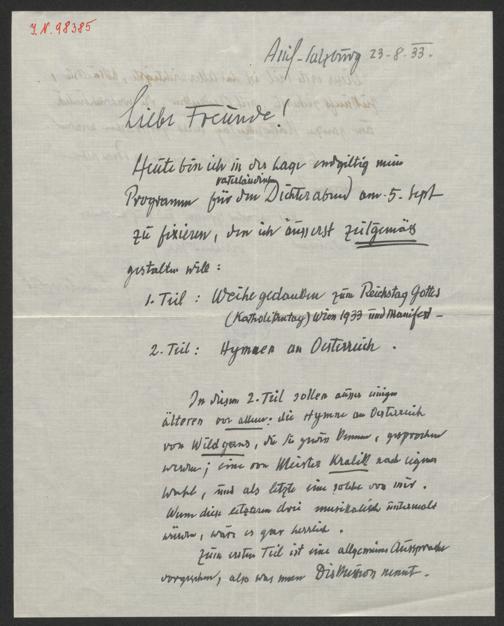 J.N. 98385
Anif-Salzburg 23-8-33.
Liebe Freunde!
Heute bin ich in der Lage endgiltig mein
vaterländischen
Programm für den Dichterabend am 5. Sept
zu fixieren, den ich äusserst zeitgemäß
gestalten will:
1. Teil: Weihegedanken zum Reichstag Gottes
(Katholikentag) Wien 1933 und Manifest-
2. Teil: Hymnen an Oesterreich.
In diesem 2. Teil sollen ausser einigen
älteren vor allem: die Hymne an Oesterreich
von Wildgans, die Sie gewiss kennen, gesprochen
werden; eine von Meister Kralik nach eigener
Wahl, und als letzte eine solche von mir.
Wenn diese letzteren drei musikalisch untermalt
würden, wäre es gar herrlich.
Zum ersten Teil ist eine allgemeine Aussprache
vorgesehen, also was man Diskussion nennt.